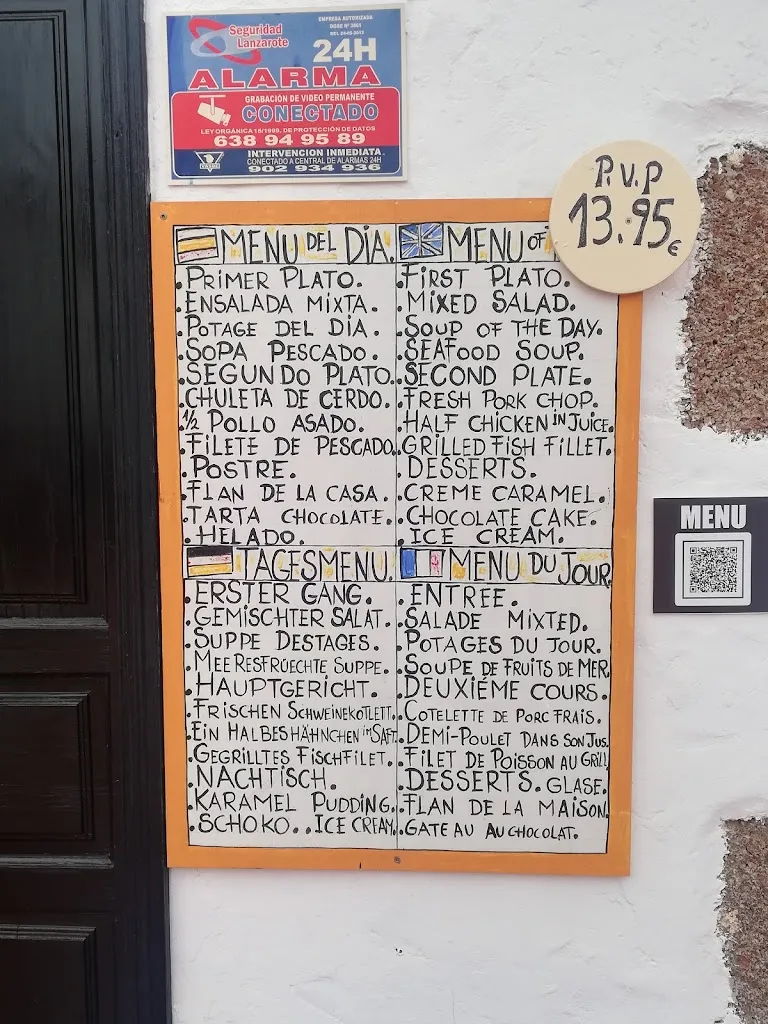 Seguridad
Lanzarote
EMPRESA AUTORIZADA
24H
ALARMA
GRABACIÓN DE VIDEO PERMANENTE
CONECTADO
LEY ORGÁNICA 15/1999, DE PROTECCIÓN DE DATOS
638 94 95 89
INTERVENCION INMEDIATA.
CONECTADO A CENTRAL DE ALARMAS 24H
902 934 936
P.V.P
13.95 €
MENU DEL DIA.
.PRIMER PLATO.
.ENSALADA MIXTA.
.POTAGE DEL DIA.
.SOPA PESCADO.
.SEGUNDO PLATO.
.CHULETA DE CERDO.
.1/2 POLLO ASADO.
.FILETE DE PESCADO.
.POSTRE.
.FLAN DE LA CASA.
.TARTA CHOCOLATE.
.HELADO.
MENU OF
.FIRST PLATO.
.MIXED SALAD.
.SOUP OF THE DAY.
.SEAFOOD SOUP.
.SECOND PLATE.
.FRESH PORK CHOP.
.HALF CHICKEN IN JUICE.
.GRILLED FISH FILLET.
.DESSERTS.
.CREME CARAMEL.
.CHOCOLATE CAKE.
.ICE CREAM.
TAGESMENU.
.ERSTER GANG.
.GEMISCHTER SALAT.
.SUPPE DESTAGES.
.MEERESFRÜECHTE SUPPE.
.HAUPTGERICHT.
.FRISCHEN SCHWEINEKOTLETT.
.EIN HALBES HÄHNCHEN IM SAFT.
.GEGRILLTES FISCHFILET.
.NACHTISCH.
.KARAMEL PUDDING.
.SCHOKO..ICE CREAM.
MENU DU JOUR
.ENTREE.
.SALADE MIXTED.
.POTAGES DU JOUR.
.SOUPE DE FRUITS DE MER.
.DEUXIÉME COURS.
.COTELETTE DE PORC FRAIS.
.DEMI-POULET DANS SON JUS.
.FILET DE POISSON AU GRILL
.DESSERTS. GLASE.
.FLAN DE LA MAISON.
.GATEAU AU CHOCOLAT.
MENU